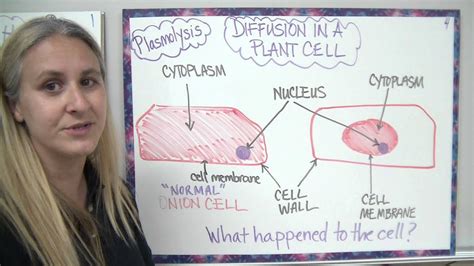 1
Plasmolysis
DIFFUSION IN A
PLANT CELL
4
CYTOPLASM
NUCLEUS
CYTOPLASM
cell membrane
"NORMAL"
ONION CELL
CELL
WALL
CELL
MEMBRANE
What happened to the cell?